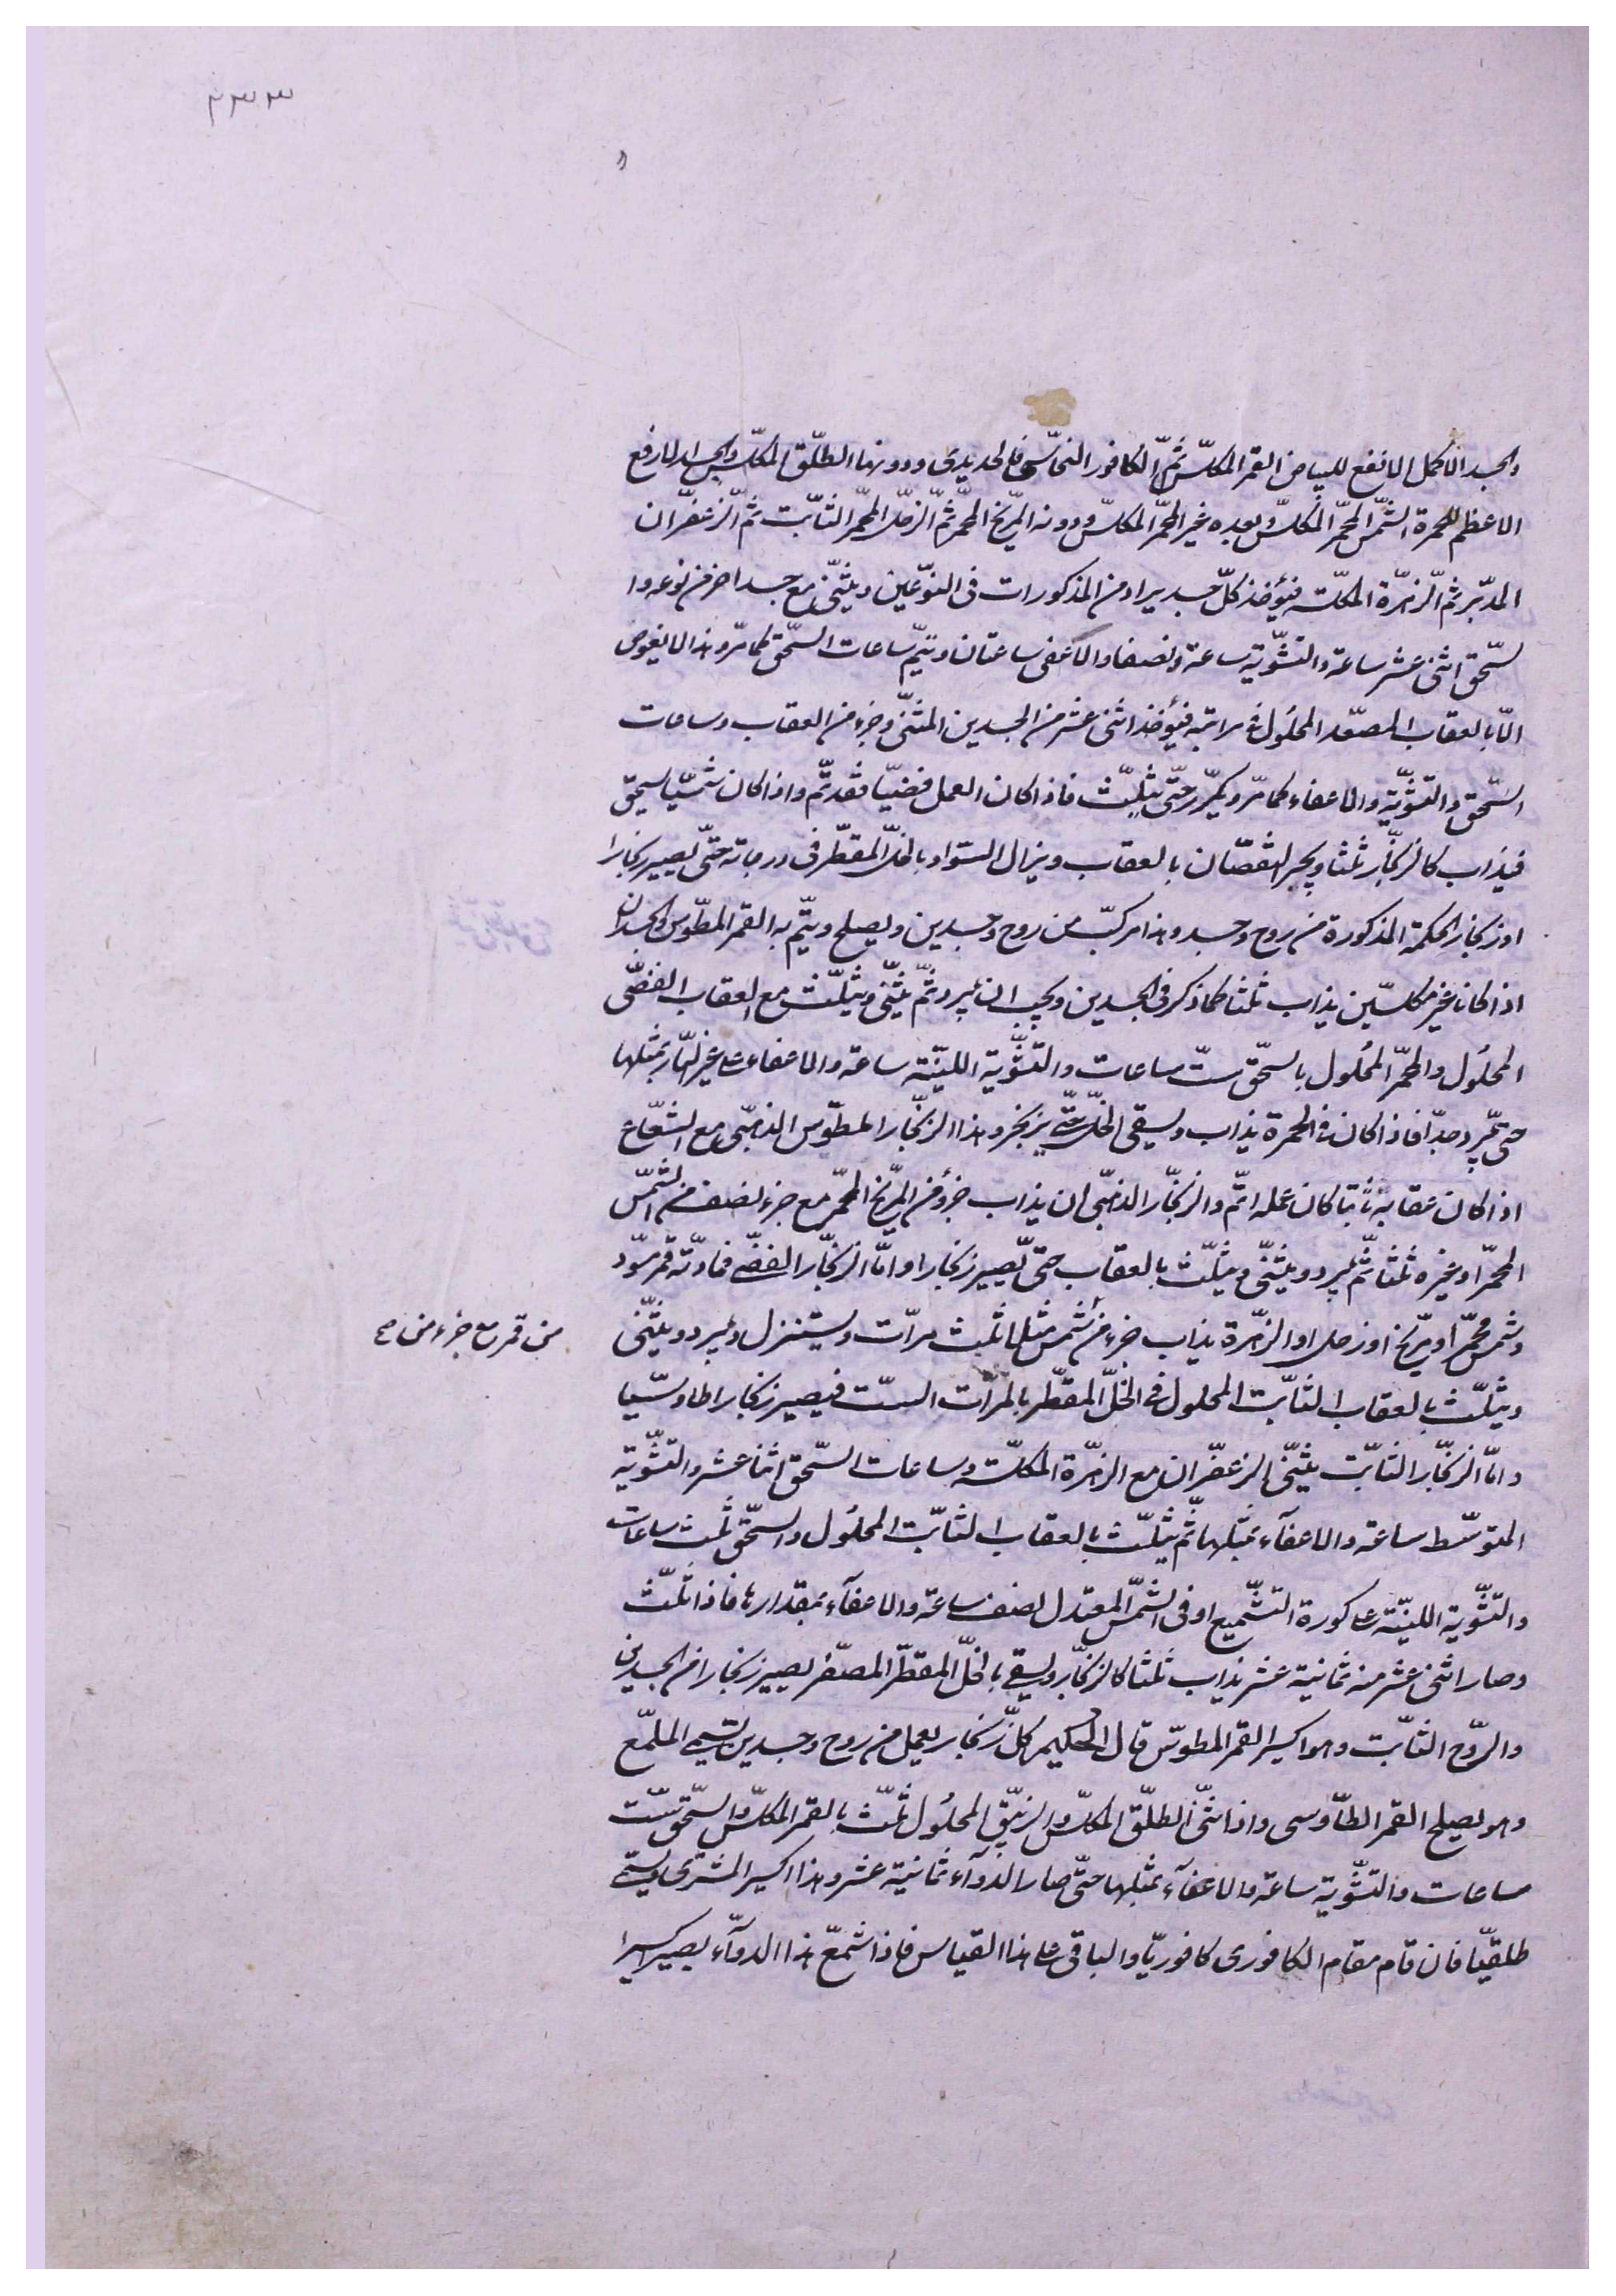 ٣٣٣
والجسد الاكمل الانفع للبياض القمر المكلّس ثمّ الكافور النحاسی فالحديدی ودونهما الطلّق المكلّس والجسد الارفع
الاعظم للحمرة الشمّس المحمّر المكلّس وبعده غير المحمّر المكلّس ودونه المرّيخ المحمّر ثمّ الزحل المحمّر الثابّت ثمّ الزّعفّران
المدبّر ثمّ الزّهرّة المكلّسة فيؤخذ كلّ جسد يراد من المذكورات فی النوّعين ويثنّی مع جسد اخر من نوعه وا
لسّحق اثنی عشر ساعة والتشّوّية ساعة ونصفا والاعفی ساعتان وتتيم ساعات السّحق كما مرّ وهذا لا يغوص
الّا بالعقاب المصعّد المحلول فی مراتبه فيؤخذ اثنی عشر من الجسدين المثنّی وجزء من العقاب وساعات
السّحق والتشّوّية والاعفاء كما مرّ ويكرّر حتّی يثلّث فاذا كان العمل فضيّا فقد تمّ واذا كان شمسيّا يسحق
فيذاب كالزنجّار ثلثا ويجبر النقصّان بالعقاب ويزال السّواد بالخلّ المقطّر فی درجاته حتّی يصير زنجارا
اوزنجار الحكمة المذكورة من روح وجسد وهذا مركبّ من روح وجسدين ويصلح ويتمّ به القمر المطوّس والجسدان
اذا كانا غير مكلسّين يذاب ثلثا كما ذكر فی الجسدين ويجب ان يبرد ثمّ يثنّی ويثلّث مع العقاب الفضّی
المحلول والمحمّر المحلول بالسّحق ستّ ساعات والتشّوّية الليّنة ساعة والاعفاء علی غير النّار بمثلها
حتّی يبرد جدّا فاذا كان فی الحمرة يذاب ويسقی الخلّ حتّی يزنجر وهذا الزنجّار المطوّس الذهبّی مع الشعّاع
اذا كان عقابه ثابتا كان عمله اتمّ والزنجّار الذهبّی ان يذاب جزؤ من المرّيخ المحمّر مع جزء نصف من الشمّس
المحمّر او غيره ثلثا ثمّ يبرد ويثنّی ويثلّث بالعقاب حتّی يصير زنجارا وامّا الزنجّار الفضّی فمادّته قمر مسّود
وشمس محمّر او مرّيخ او زحل او الزّهرة يذاب جزء من شمس مثلا ثلث مرّات ويستنزل ويبرد ويثنّی
من قمر مع جزء من صح
ويثلّث بالعقاب الثابّت المحلول فی الخلّ المقطّر بالمرّات الستّ فيصير زنجارا طاوسّيا
وامّا الزنجّار الثابّت يثنّی الزعفّران مع الزهرّة المكلّسة وساعات السّحق اثنا عشر والتشّوّية
المتوسّط ساعة والاعفآء بمثلها ثمّ يثلّث بالعقاب الثابّت المحلول والسّحق ثلث ساعات
والتشّوّية الليّنة علی كورة التشّميع او فی الشمّس المعتدل نصف ساعة والاعفآء بمقدارها فاذا ثلّث
وصار اثنی عشر منه ثمانية عشر يذاب ثلثا كالزنجّار ويسقی بالخلّ المقطّر المصعّر يصير زنجارا من الجسدين
والرّوح الثابّت وهو اكسير القمر المطوّس قال الحكيم كلّ زنجار يعمل من روح وجسدين يسمّی الملمّع
وهو يصلح القمر الطّاوسی واذا ثنّی الطلّق المكلّس والزيبّق المحلول ثلّث بالقمر المكلّس والسّحق ستّ
ساعات والتشّوّية ساعة والاعفآء بمثلها حتّی صار الدوآء ثمانية عشر وهذا اكسير المشتری ويسمّی
طلقيّا فان قام مقام الكافوری كافوريّا والباقی علی هذا القياس فاذا شمّع هذا الدوآء يصير اكسيرا